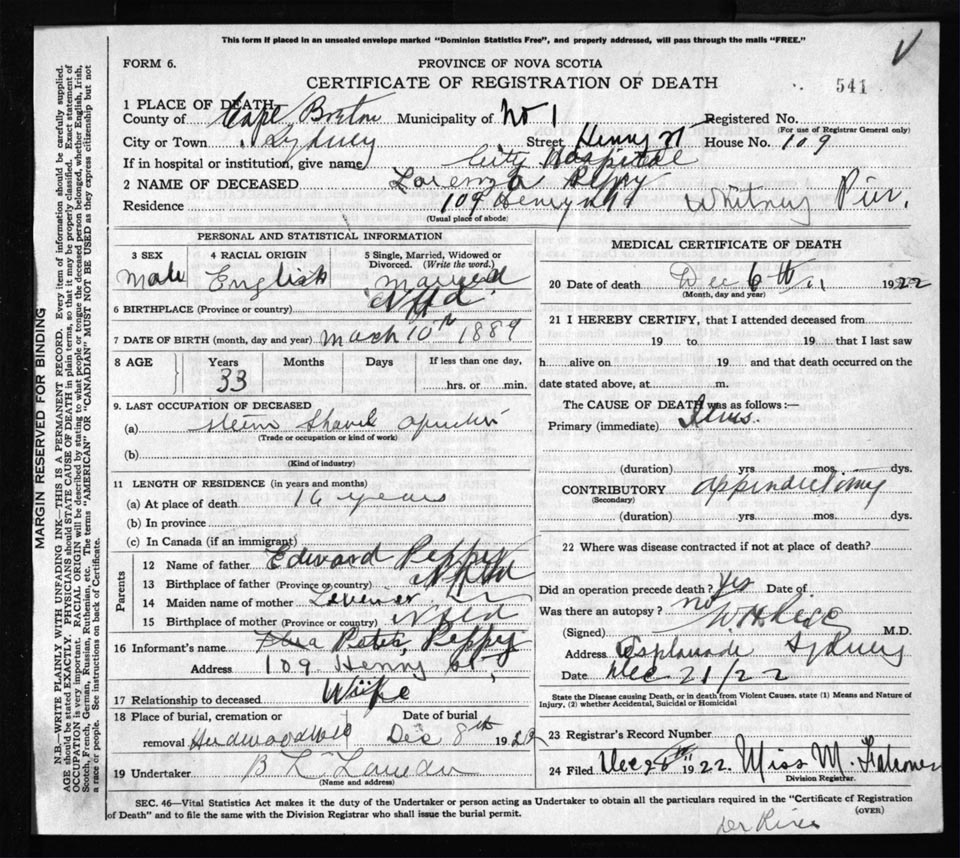 This form if placed in an unsealed envelope marked "Dominion Statistics Free", and properly addressed, will pass through the mails "FREE."
FORM 6.
PROVINCE OF NOVA SCOTIA
CERTIFICATE OF REGISTRATION OF DEATH
541
1 PLACE OF DEATH
County of Cape Breton Municipality of No 1 Registered No.
(For use of Registrar General only)
City or Town Sydney Street Henry St House No. 109
If in hospital or institution, give name City Hospital
2 NAME OF DECEASED Lorenza Peppy
Residence 109 Henry St Whitney Pier.
(Usual place of abode)
PERSONAL AND STATISTICAL INFORMATION
3 SEX Male
4 RACIAL ORIGIN English
5 Single, Married, Widowed or Divorced. (Write the word.) Married
6 BIRTHPLACE (Province or country) Nfld
7 DATE OF BIRTH (month, day and year) March 10th 1889
8 AGE Years 33 Months Days If less than one day, hrs. or min.
9. LAST OCCUPATION OF DECEASED
(a) Steam Shovel operator
(Trade or occupation or kind of work)
(b)
(Kind of industry)
11 LENGTH OF RESIDENCE (in years and months)
(a) At place of death 16 years
(b) In province
(c) In Canada (if an immigrant)
Parents
12 Name of father Edward Peppy
13 Birthplace of father (Province or country) Nfld
14 Maiden name of mother
15 Birthplace of mother (Province or country) Nfld
16 Informant's name Peppy
Address 109 Henry St,
17 Relationship to deceased Wife
18 Place of burial, cremation or removal Hardwood Hill
Date of burial Dec 8th 1922
19 Undertaker
(Name and address)
MEDICAL CERTIFICATE OF DEATH
20 Date of death Dec 6th 1922
(Month, day and year)
21 I HEREBY CERTIFY, that I attended deceased from
19 to 19 that I last saw
h alive on 19 and that death occurred on the
date stated above, at m.
The CAUSE OF DEATH was as follows:—
Primary (immediate) Ileus.
(duration) yrs mos dys.
CONTRIBUTORY appendectomy
(Secondary)
(duration) yrs. mos. dys.
22 Where was disease contracted if not at place of death?
Did an operation precede death? Yes Date of
Was there an autopsy? no
(Signed) M.D.
Address Esplanade Sydney
Date Dec 21/22
State the Disease causing Death, or in death from Violent Causes, state (1) Means and Nature of Injury, (2) whether Accidental, Suicidal or Homicidal
23 Registrar's Record Number
24 Filed Dec 1922 Miss M.
Division Registrar.
SEC. 46—Vital Statistics Act makes it the duty of the Undertaker or person acting as Undertaker to obtain all the particulars required in the "Certificate of Registration
of Death" and to file the same with the Division Registrar who shall issue the burial permit.
(OVER)
MARGIN RESERVED FOR BINDING
N.B.—WRITE PLAINLY WITH UNFADING INK—THIS IS A PERMANENT RECORD. Every item of information should be carefully supplied.
AGE should be stated EXACTLY. PHYSICIANS should STATE CAUSE OF DEATH in plain terms, so that it may be properly classified. Exact statement of
OCCUPATION is very important. RACIAL ORIGIN will be described by stating to what people or tongue the deceased person belonged, whether English, Irish,
Scotch, French, German, Russian, Ruthenian, etc. The terms "AMERICAN" or "CANADIAN" MUST NOT BE USED as they express citizenship but not
a race or people. See instructions on back of Certificate.